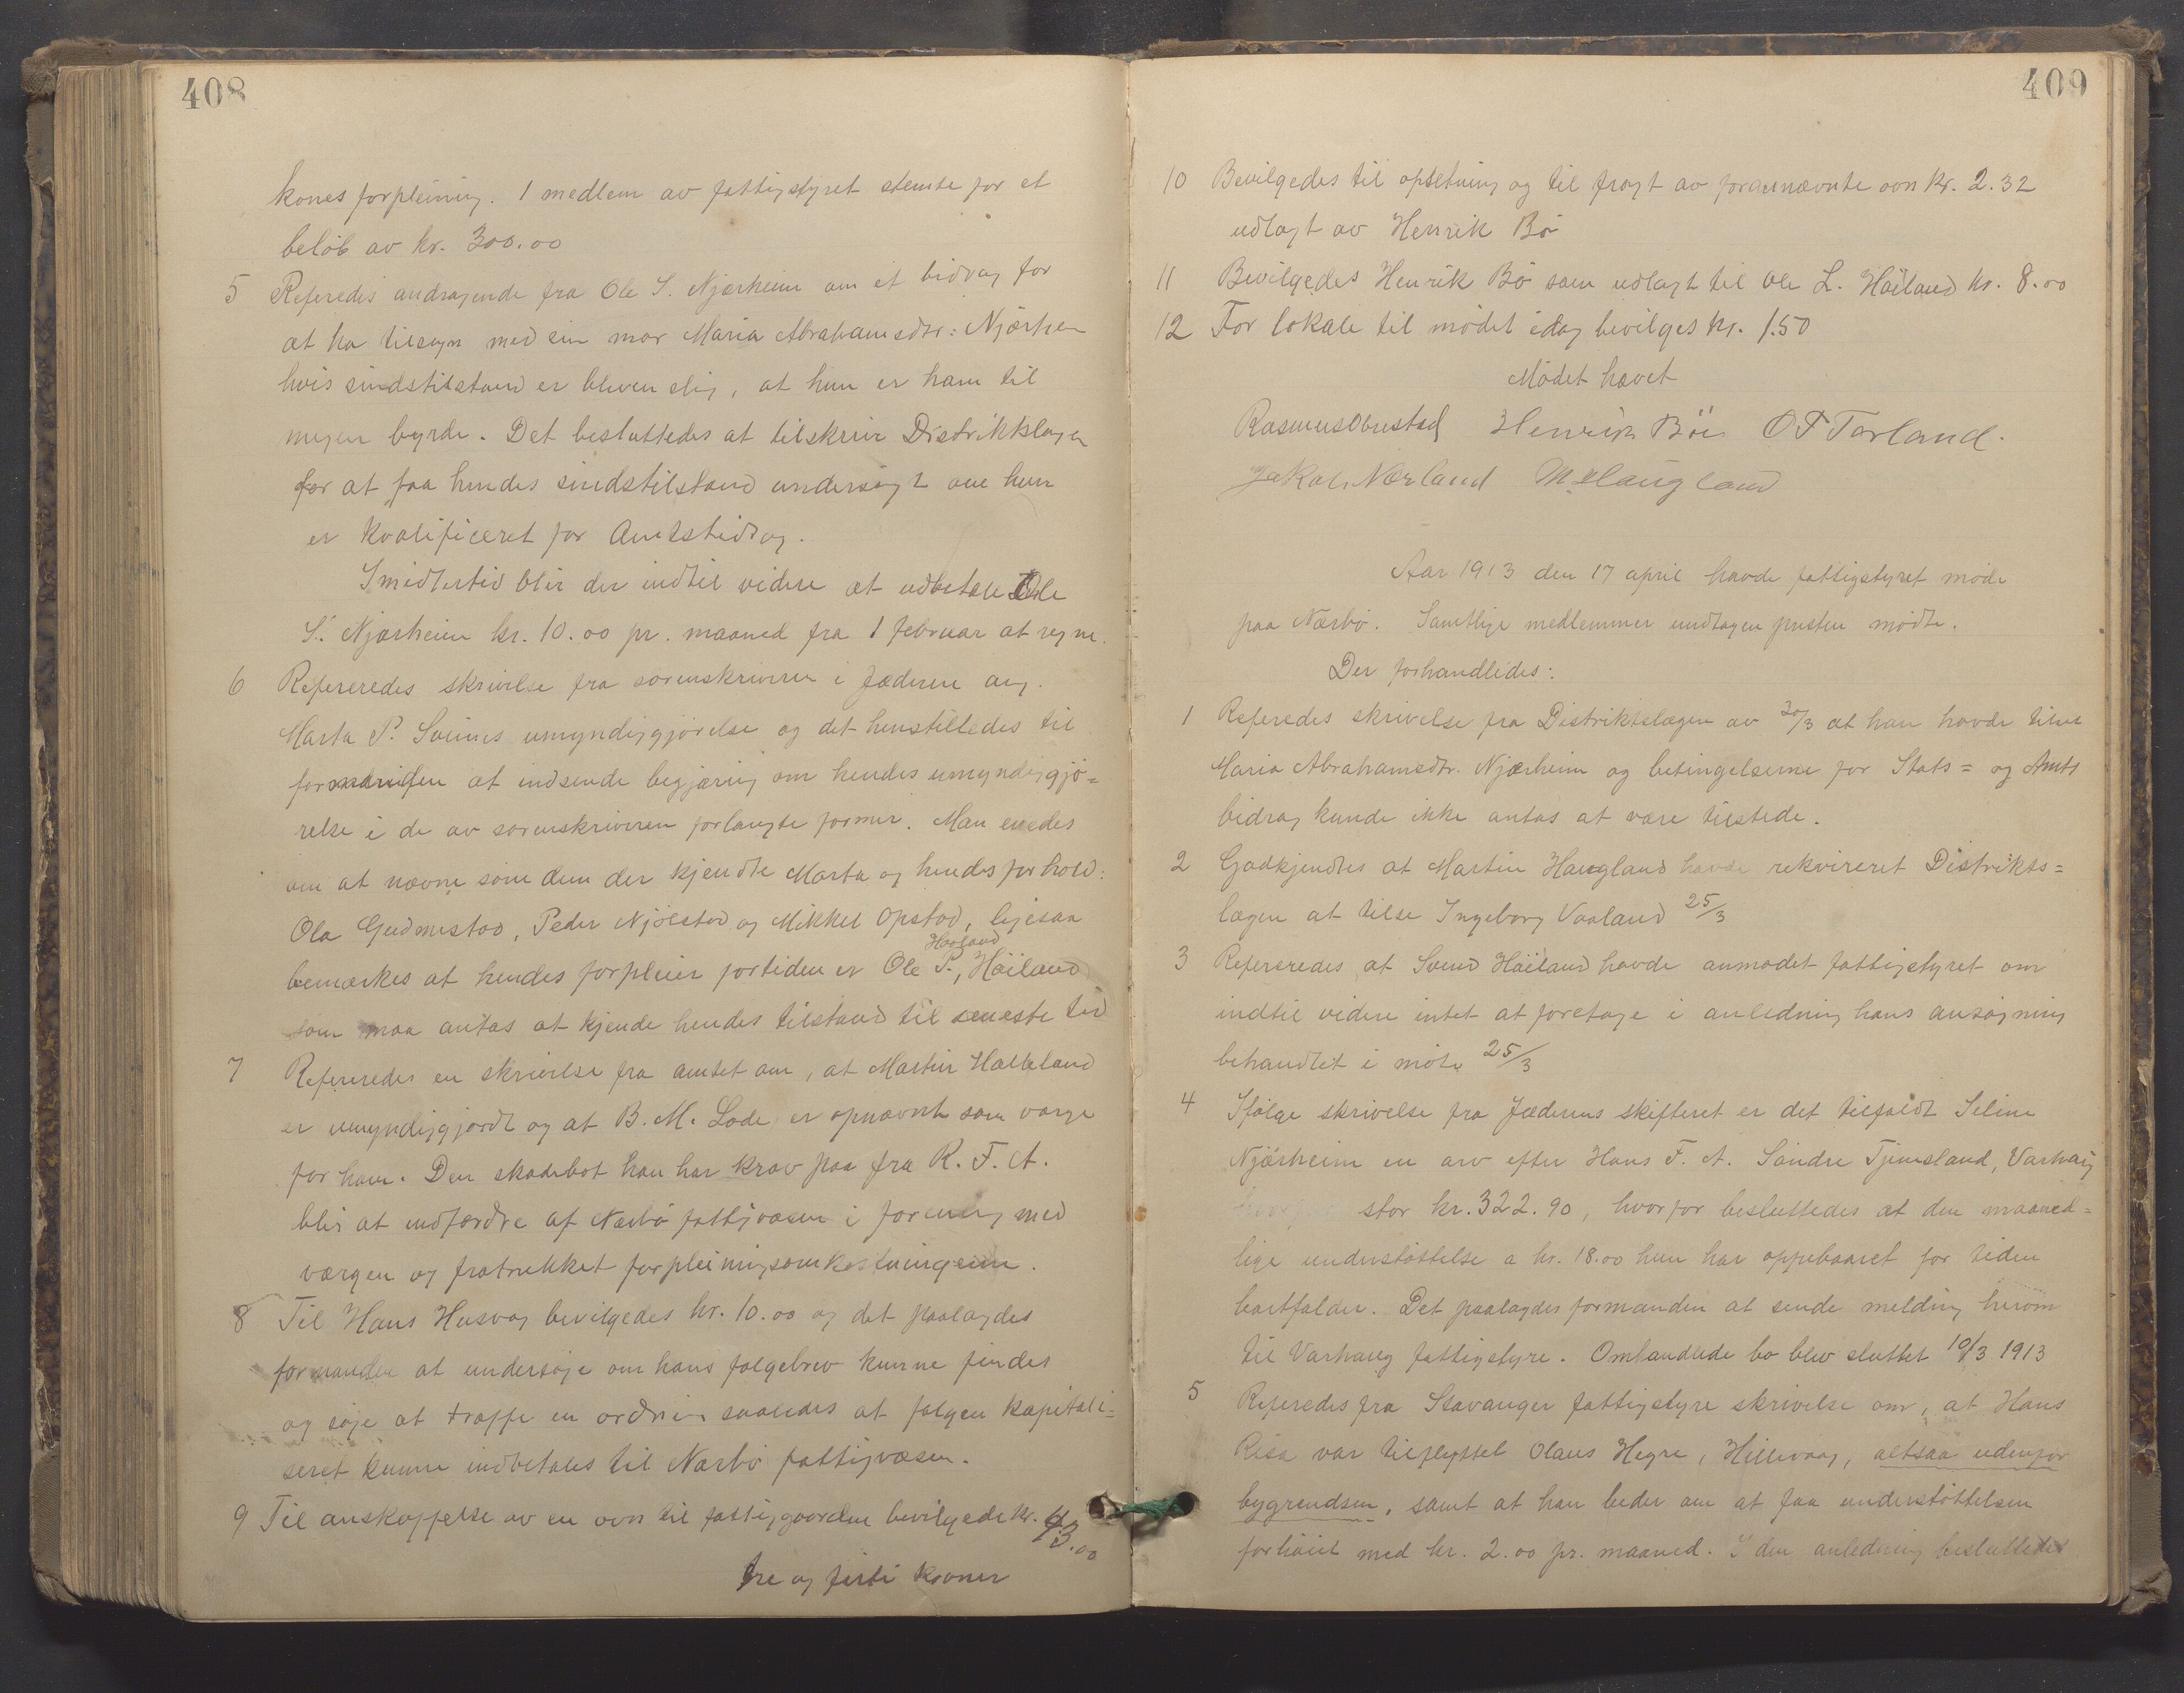 408
kones forpleining. 1 medlem av fattigstyret stemte for et
beløb av kr. 300.00
5 Referedes andragende fra Ole S. Njærheim om et bidrag for
at ha tilsyn med sin mor Maria Abrahamsdtr. Njærheim
hvis sindstilstand er bleven slig, at hun er ham til
megen byrde. Det besluttedes at tilskrive Distriktslægen
for at faa hendes sindstilstand undersøgt om hun
er kvalificeret for Amtsbidrag.
Imidlertid blir der indtil videre at udbetale Ole
S. Njærheim kr. 10.00 pr. maaned fra 1 februar at regne.
6 Refereredes skrivelse fra sorenskriveren i Jæderen ang.
Marta P. Soimes umyndiggjørelse og det henstilledes til
formanden at indsende begjæring om hendes umyndiggjø=
relse i de av sorenskriveren forlangte former. Man enedes
om at nævne som dem der kjendte Marta og hendes forhold:
Ola Gudmestad, Peder Njølstad og Mikkel Opstad, ligesaa
Haaland
bemærkes at hendes forpleier fortiden er Ole P., Høiland
som maa antas at kjende hendes tilstand til seneste tid
7 Refereredes en skrivelse fra amtet om, at Martin Halleland
er umyndiggjordt og at B. M. Lode er opnævnt som værge
for ham. Den skadebot han har krav paa fra R. F. A.
blir at indfordre af Nærbø fattigvæsen i forening med
værgen og fratrukket forpleiningsomkostningerne.
8 Til Hans Husvæg bevilgedes kr. 10.00 og det paalagdes
formanden at undersøge om hans følgebrev kunne findes
og søge at træffe en ordning saaledes at følgen kapitali=
seret kunne indbetales til Nærbø fattigvæsen.
9 Til anskaffelse av en ovn til fattiggaarden bevilgede kr. 43.00
tre og firti kroner
409
10 Bevilgedes til opsetning og til fragt av forannævnte ovn kr. 2.32
udlagt av Henrik Bø
11 Bevilgedes Henrik Bø som udlagt til Ole L. Høiland kr. 8.00
12 For lokale til mødet idag bevilges kr. 1.50
Mødet hævet
Rasmus Obrestad Henrik Bøe O T Torland.
Jakob Nærland M. Haugland
Aar 1913 den 17 april havde fattigstyret møde
paa Nærbø. Samtlige medlemmer undtagen presten mødte.
Der forhandledes:
1 Referedes skrivelse fra Distriktslægen av 30/3 at han havde tilset
Maria Abrahamsdtr. Njærheim og betingelserne for Stats= og Amts
bidrag kunde ikke antas at være tilstede.
2 Godkjendtes at Martin Haugland havde rekvireret Distrikts=
lægen at tilse Ingeborg Vaaland 25/3
3 Refereredes at Svend Høiland havde anmodet fattigstyret om
indtil videre intet at foretage i anledning hans ansøgning
behandlet i møte 25/3
4 Ifølge skrivelse fra Jæderens skifteret er det tilfaldt Seline
Njærheim en arv efter Hans F. A. Søndre Tjemsland, Varhaug
stor kr. 322.90, hvorfor besluttedes at den maaned=
lige understøttelse a kr. 18.00 hun har oppebaaret for tiden
bortfalder. Det paalagdes formanden at sende melding herom
til Varhaug fattigstyre. Omhandlede bo blev sluttet 10/3 1913
5 Referedes fra Stavanger fattigstyre skrivelse om, at Hans
Risa var tilflyttet Olaus Hegre, Hillevaag, altsaa udenfor
bygrendsen, samt at han beder om at faa understøttelsen
forhøiet med kr. 2.00 pr. maaned. I den anledning besluttedes